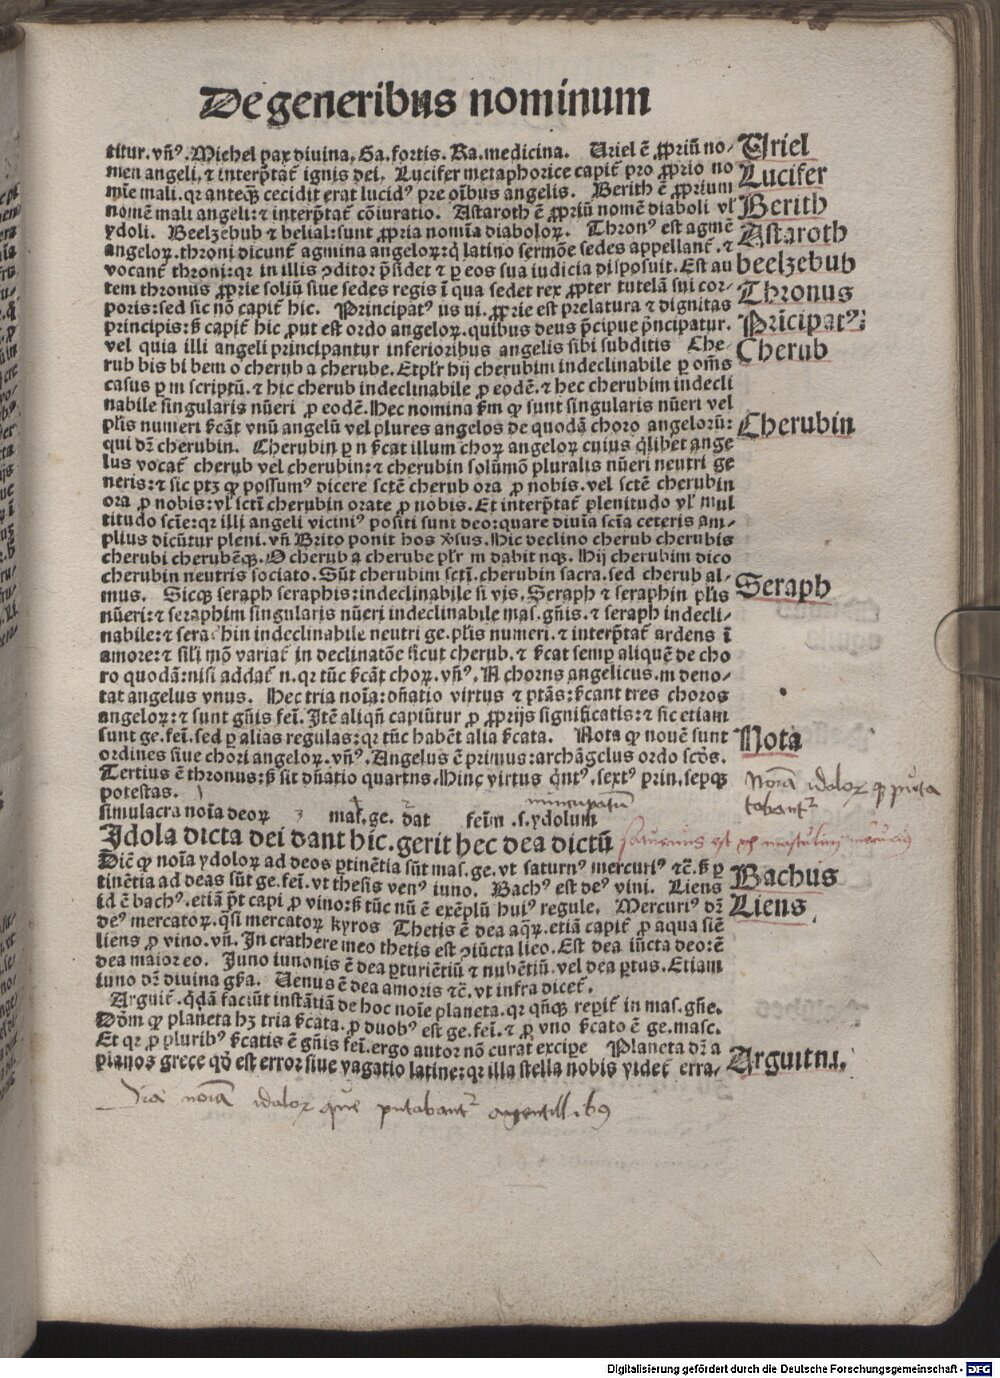 De generibus nominum
titur.vnꝰ.Michel pax diuina. Ga.fortis. Ra.medicina. Uriel ē ꝓpriū no-
men angeli.⁊ interp̄tat̄ ignis dei. Lucifer metaphorice capit̄ pro ꝓprio no
mīe mali.qꝛ anteqȝ cecidit erat lucidꝰ pre oībus angelis. Berith ē ꝓprium
nomē mali angeli:⁊ interp̄tat̄ cōiuratio. Astaroth ē ꝓpriū nomē diaboli vl̄
ydoli. Beelzebub ⁊ belial:sunt ꝓpria nomīa diaboloꝝ. Thronꝰ est agmē
angeloꝝ.throni dicunt̄ agmina angeloꝝ:q̄ latino sermōe sedes appellant̄.⁊
vocant̄ throni:qꝛ in illis ↄditor p̄sidet ⁊ ꝑ eos sua iudicia disposuit. Est au
tem thronus ꝓprie soliū siue sedes regis ī qua sedet rex ꝓpter tutelā sui cor-
poris:sed sic nō capit̄ hic. Principatꝰ us ui.ꝓprie est prelatura ⁊ dignitas
principis:ß capit̄ hic ꝓut est ordo angeloꝝ.quibus deus p̄cipue p̄ncipatur.
vel quia illi angeli principantur inferioribus angelis sibi subditis Che-
rub bis bi bem o cherub a cherube. Etplr̄ hij cherubim indeclinabile ꝑ om̄s
casus ꝑ m scriptū.⁊ hic cherub indeclinabile ꝓ eodē.⁊ hec cherubim indecli
nabile singularis nūeri ꝓ eodē. Hec nomina ẜm ꝙ sunt singularis nūeri vel
plis numeri ẜcāt vnū angelū vel plures angelos de quodā choro angeloꝝ:
qui dr̄ cherubin. Cherubin ꝑ n ẜcat illum choꝝ angeloꝝ cuius q̄libet ange
lus vocat̄ cherub vel cherubin:⁊ cherubin solūmō pluralis nūeri neutri ge
neris:⁊ sic ptȝ ꝙ possumꝰ dicere sctē cherub ora ꝓ nobis.vel sctē cherubin
ora ꝓ nobis:vl̄ sctī cherubin orate ꝓ nobis. Et interp̄tat̄ plenitudo vl̄ mul
titudo scīe:qꝛ illi angeli viciniꝰ positi sunt deo:quare diuīa scīa ceteris am-
plius dicūtur pleni.vn̄ Brito ponit hos v̄sus. Hic declino cherub cherubis
cherubi cherubēqȝ. O cherub a cherube plr̄ m dabit nqȝ. Hij cherubim dico
cherubin neutris sociato. Sūt cherubim sctī.cherubin sacra.sed cherub al-
mus. Sicqȝ seraph seraphis:indeclinabile si vis. Seraph ⁊ seraphin plis
nūeri:⁊ seraphim singularis nūeri indeclinabile mas.gn̄is.⁊ seraph indecli-
nabile:⁊ seraphin indeclinabile neutri ge.plis numeri.⁊ interp̄tat̄ ardens ī
amore:⁊ sili mō variat̄ in declinatōe sicut cherub.⁊ ẜcat semꝑ aliquē de cho
ro quodā:nisi addat̄ n.qꝛ tūc ẜcat̄ choꝝ.vnꝰ. N chorus angelicus.m deno-
tat angelus vnus. Hec tria noīa:dn̄atio virtus ⁊ ptās:ẜcant tres choros
angeloꝝ:⁊ sunt gn̄is fei. Itē aliqn̄ capiūtur ꝓ ꝓprijs significatis:⁊ sic etiam
sunt ge.fei.sed ꝑ alias regulas:qꝛ tūc habēt alia ẜcata. Nota ꝙ nouē sunt
ordines siue chori angeloꝝ.vnꝰ. Angelus ē primus:archāgelus ordo scd̄s.
Tertius ē thronus:ß sit dn̄atio quartus. Hinc virtus q̄ntꝰ.sextꝰ prin.sepqȝ
potestas.
simulacra noīa deoꝝ mas.ge. dat fein .s.ydolum
Idola dicta dei dant hic.gerit hec dea dictū
Dicē ꝙ noīa ydoloꝝ ad deos ꝑtinētia sūt mas.ge.vt saturnꝰ mercuriꝰ ⁊c̄.ß ꝑ
tinētia ad deas sūt ge.fei.vt thesis venꝰ iuno. Bachꝰ est deꝰ vini. Liens
id ē bachꝰ.etiā p̄t capi ꝓ vino:ß tūc nū ē exēplū huiꝰ regule. Mercuriꝰ dr̄
deꝰ mercatoꝝ.qsi mercatoꝝ kyros Thetis ē dea aq̄ꝝ.etiā capit̄ ꝓ aqua siē
liens ꝓ vino.vn̄. In crathere meo thetis est ↄiūcta lieo. Est dea iūcta deo:ē
dea maior eo. Juno iunonis ē dea ꝑturiētiū ⁊ nubētiū.vel dea ꝑtus. Etiam
iuno dr̄ diuina gr̄a. Uenus ē dea amoris ⁊c̄.vt infra dicet̄.
Arguit̄.q̄dā faciūt instātiā de hoc noīe planeta.qꝛ qn̄qȝ reꝑit̄ in mas.gn̄e.
Dōm ꝙ planeta hȝ tria ẜcata.ꝓ duobꝰ est ge.fei.⁊ ꝓ vno ẜcato ē ge.masc.
Et qꝛ ꝓ pluribꝰ ẜcatis ē gn̄is fei.ergo autor nō curat excipe Planeta dr̄ a
planos grece qd̄ est error siue vagatio latine:qꝛ illa stella nobis videt̄ erra-
Uriel
Lucifer
Berith
Astaroth
beelzebub
Thronus
Prīcipatꝰ:
Cherub
Cherubin
Seraph
Nota
Bachus
Liens
Arguitur.
Digitalisierung gefördert durch die Deutsche Forschungsgemeinschaft - DFG